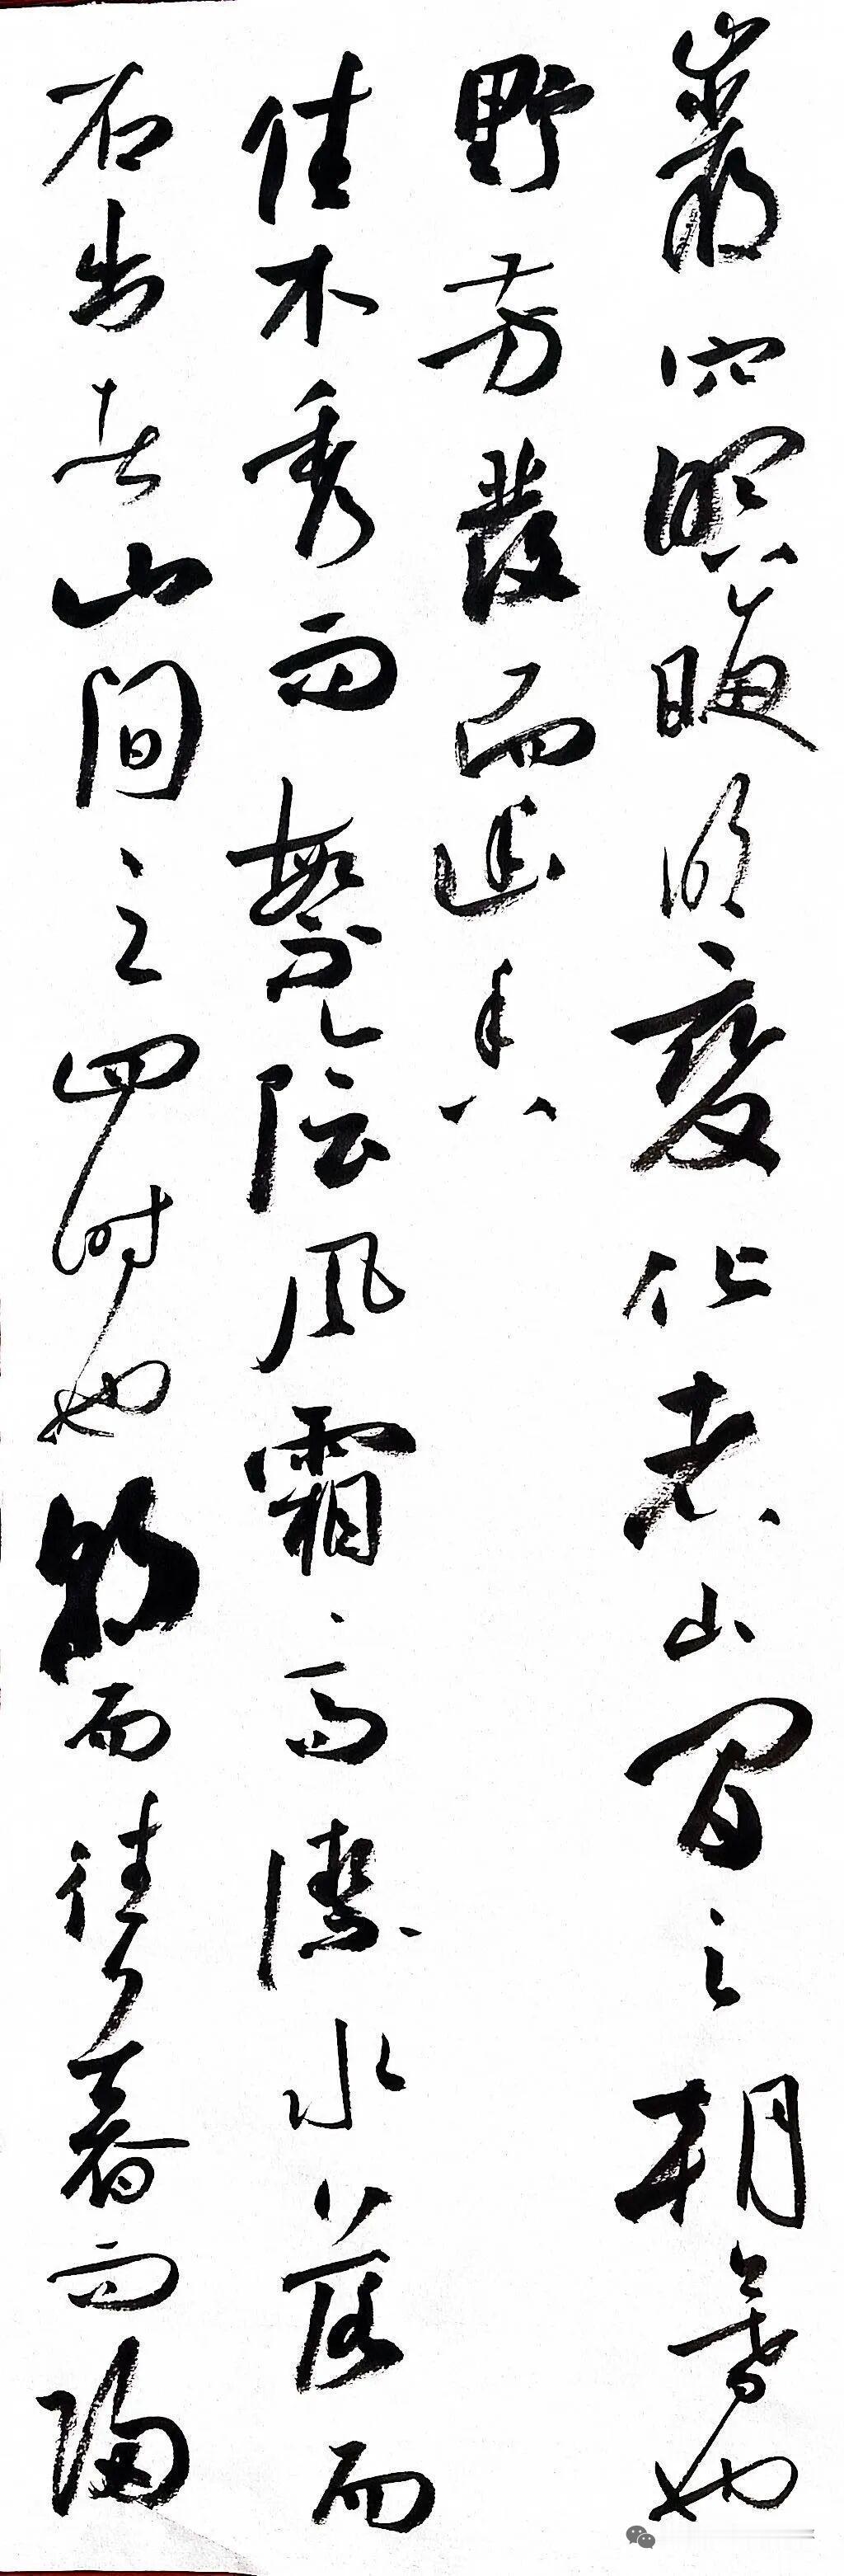 巖穴暝晦明變化者山間之朝暮也
野芳發而幽香
佳木秀而繁陰風霜高潔水落而
石出者山間之四時也朝而往暮而歸